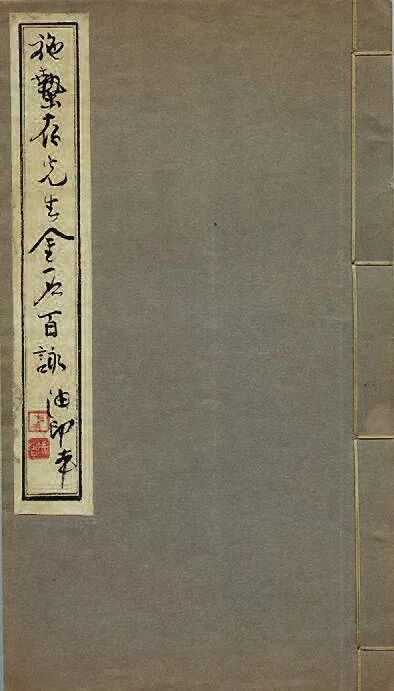 施蟄存先生金石百詠
油印本